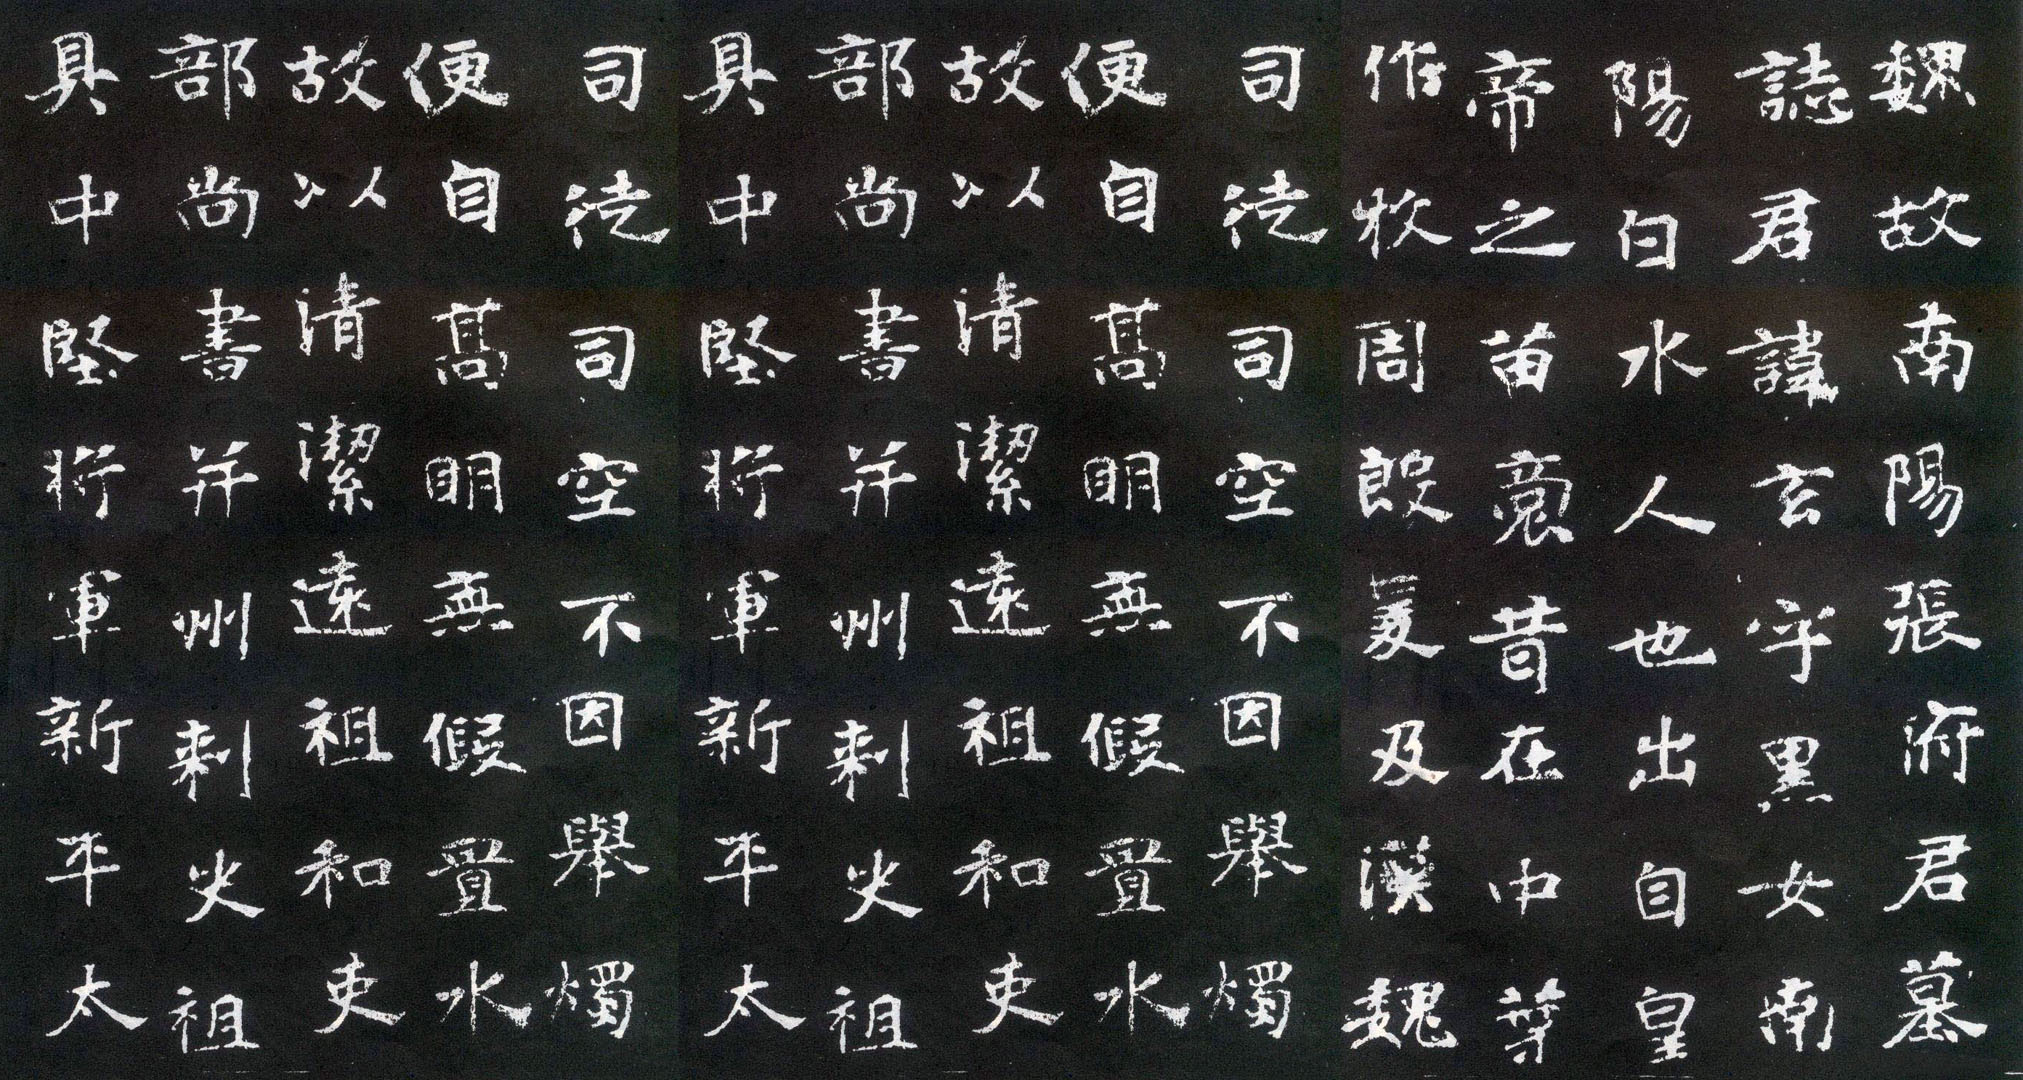 魏故南陽張府君墓
誌君諱玄字黑女南
陽白水人也出自皇
帝之苗裔昔在中葉
作牧周殷爰及漢魏
司徒司空不因舉燭
便自高明無假置水
故以清潔遠祖和吏
部尚書并州刺史祖
具中堅將軍新平太
司徒司空不因舉燭
便自高明無假置水
故以清潔遠祖和吏
部尚書并州刺史祖
具中堅將軍新平太